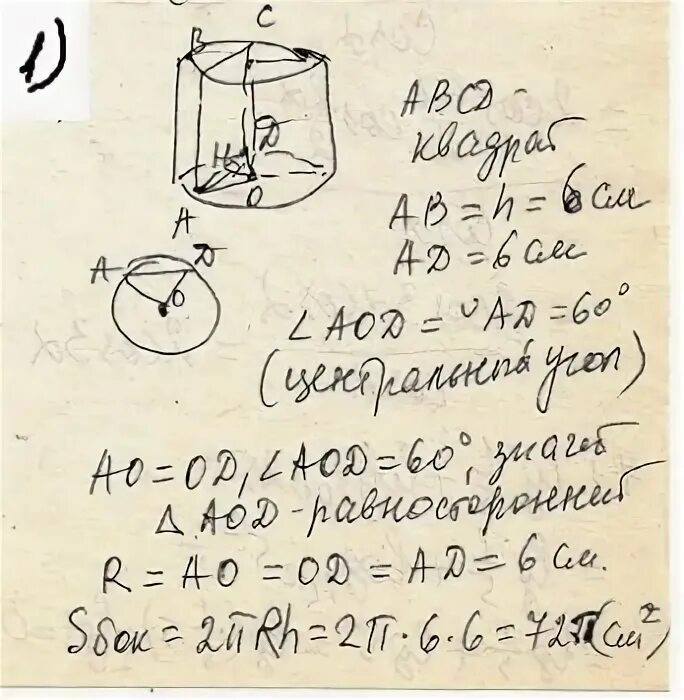 1)
C
B
H
D
O
A
ABCD -
квадрат
AB = h = 6 см
AD = 6 см
A
D
O
∠AOD = ◡AD = 60°
(центральный угол)
AO = OD, ∠AOD = 60°, значит
△ AOD - равносторонний
R = AO = OD = AD = 6 см.
Sбок = 2πRh = 2π · 6 · 6 = 72π(см²)